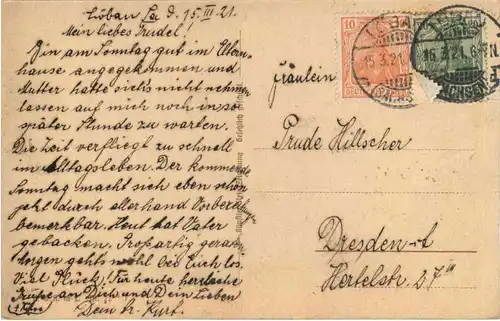 Löbau Sa. d. 15. III. 21.
Mein liebes Trudel!
Bin am Sonntag gut im Eltern-
hause angekommen und
Mutter hatte sichs nicht nehmen
lassen auf mich noch in so
später Stunde zu warten.
Die Zeit verfliegt zu schnell
im Alltagsleben. Der kommende
Sonntag macht sich eben schon
jetzt durch allerhand
bemerkbar. Heut hat Vater
gebacken. Großartig geraten
gehts wohl bei Euch los.
Viel Glück! Für heute herzliche
Grüße an Dich und Dein Lieben
Dein lb. Kurt.
Fräulein
Trude Hillscher
Dresden-A
Hertelstr. 27 III
10
15.3.21
15.3.21.6-7N.